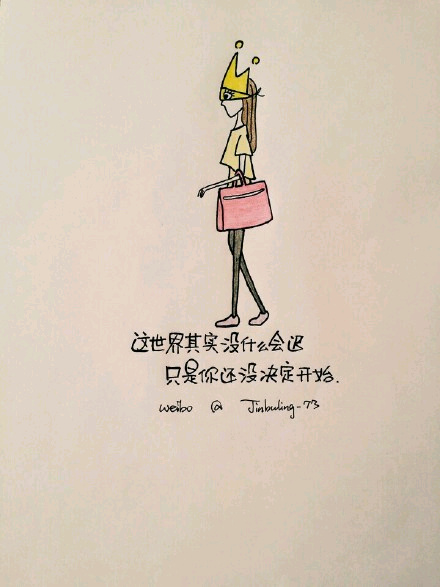 这世界其实没什么会迟
只是你还没决定开始.
weibo @ Jinbuling-73